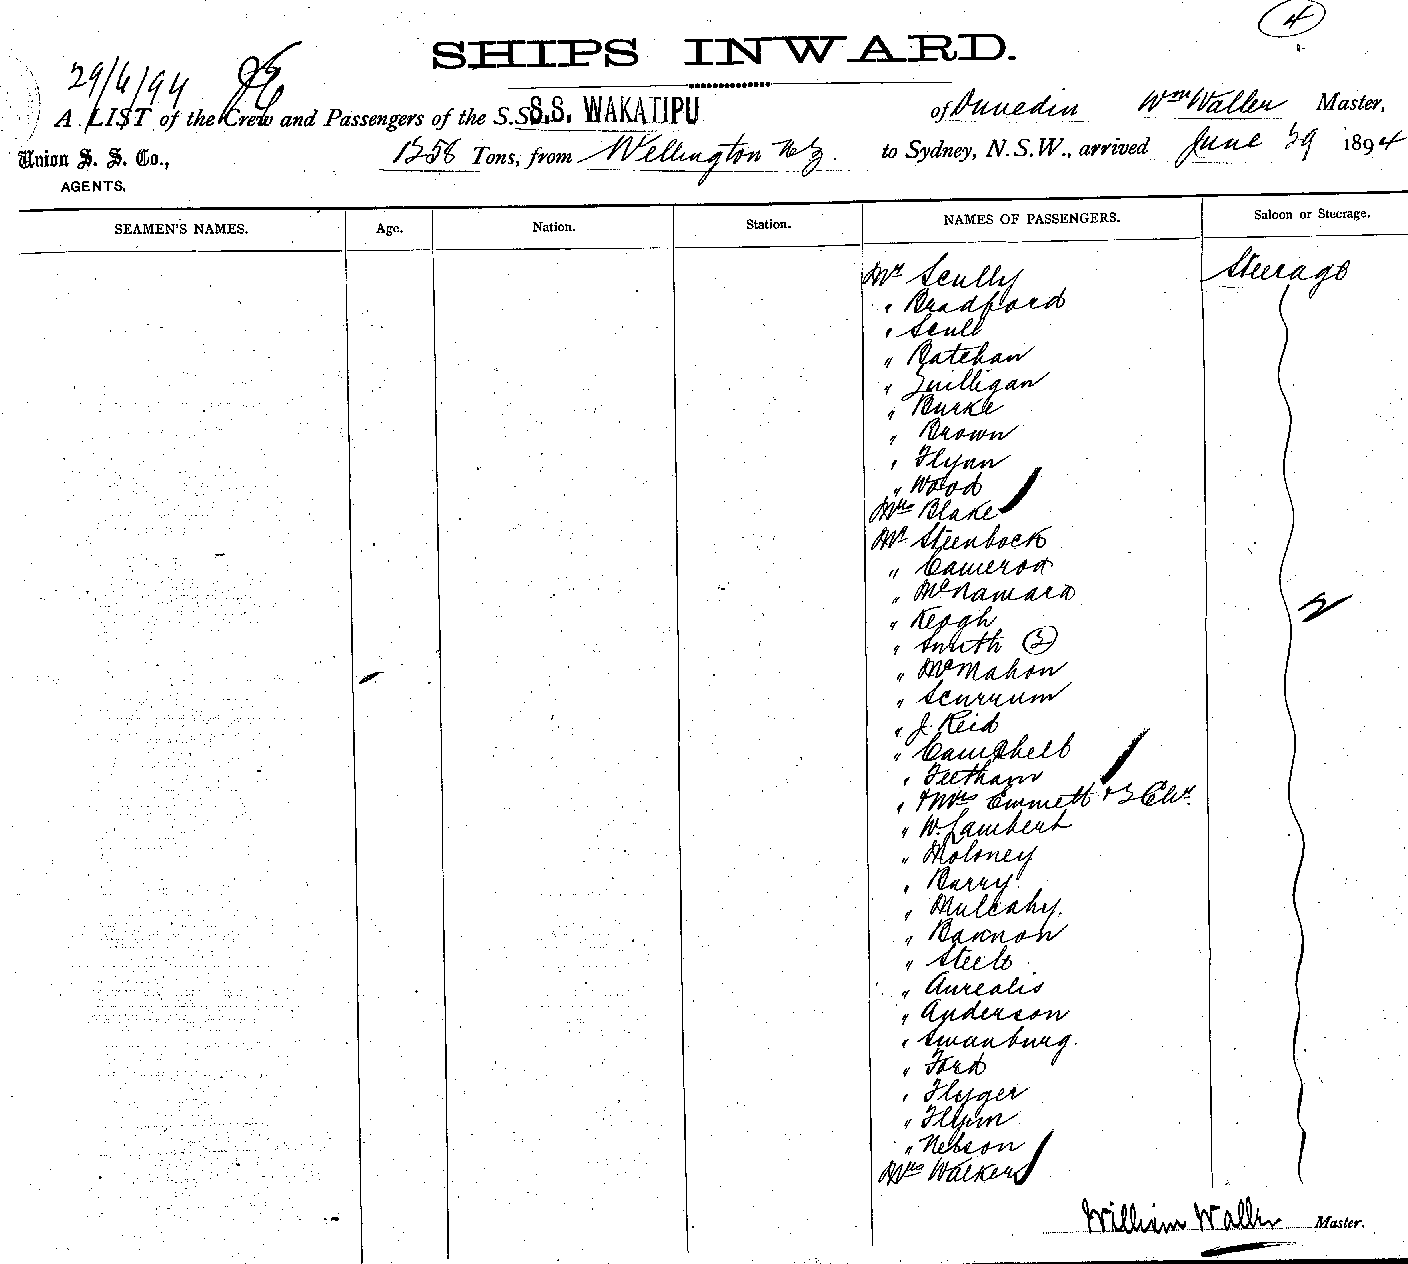 4
SHIPS INWARD.
29/6/94
A LIST of the Crew and Passengers of the S.S. S.S. WAKATIPU of Dunedin Wm Waller Master,
Union S. S. Co., 1258 Tons, from Wellington N.Z. to Sydney, N.S.W., arrived June 29 1894
AGENTS.
SEAMEN'S NAMES. Age. Nation. Station. NAMES OF PASSENGERS. Saloon or Steerage.
Mr Scully Steerage
" Bradford
" Scull
" Batehan
" Quilligan
" Burke
" Brown
" Flynn
" Wood
Mrs Blake
Mr Steenbock
" Cameron
" McNamara
" Keogh
" Smith (2)
" McMahon
" Scurrum
" J. Reid
" Campbell
" Feetham
" & Mrs Emmett & 3 Chn.
" W. Lambert
" Moloney
" Barry
" Mulcahy.
" Bannon
" Steele
" Aurealis
" Anderson
" Swanburg.
" Ford
" Flyger
" Flynn
" Nelson
Mrs Walker
William Waller Master.